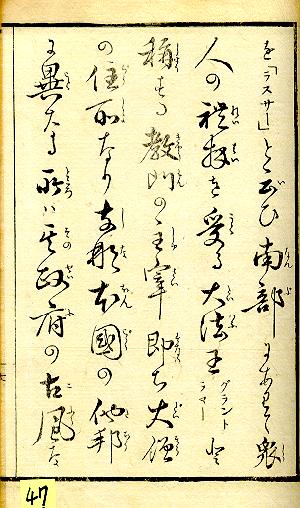 を「ラスサー」と云ひ南部にありて衆
人の礼拝を受る大法王グラントラマーと
稱する教門の主宰即ち大僧
の住所なり支那本國の他邦
に異なる所ハ其政府の古風な
47